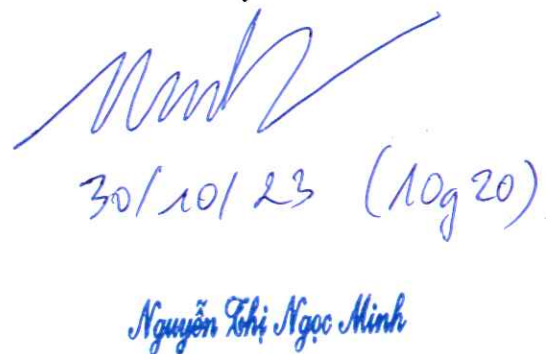 Minh
30/10/23 (10g20)
Nguyễn Thị Ngọc Minh